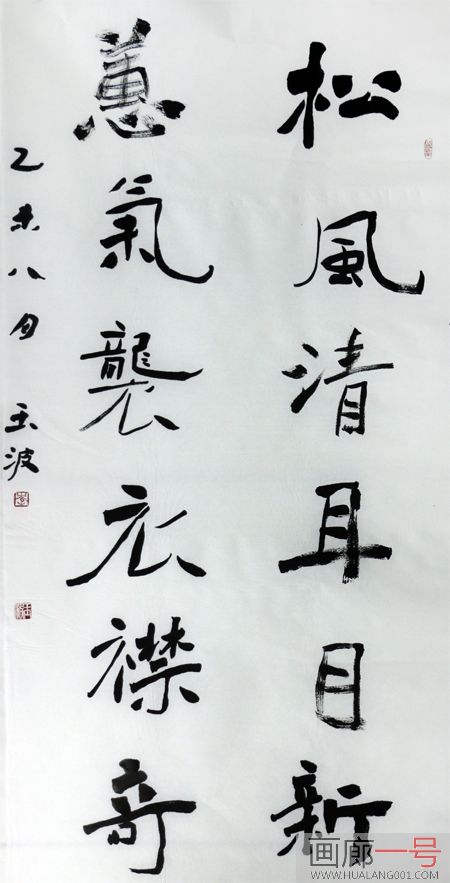 松風清耳目新
蕙氣襲衣襟奇
乙未八月 玉波
画廊一号
WWW.HUALANG001.COM